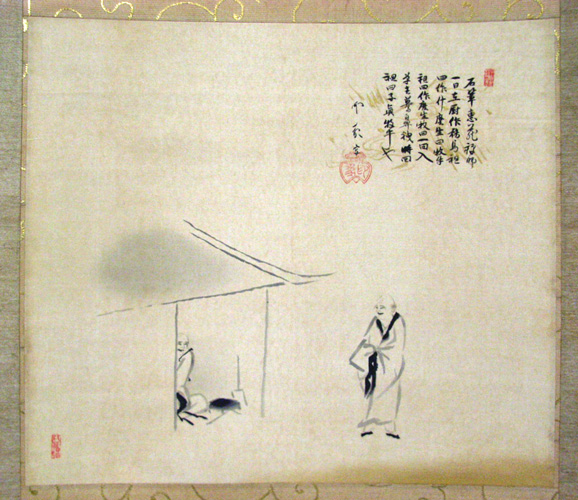 石鞏惠蔵禅師
一日在厨作務馬祖
曰作什麼生曰牧牛
祖曰作麼生牧曰一回入
草去驀鼻拽將回
祖曰子真牧牛也